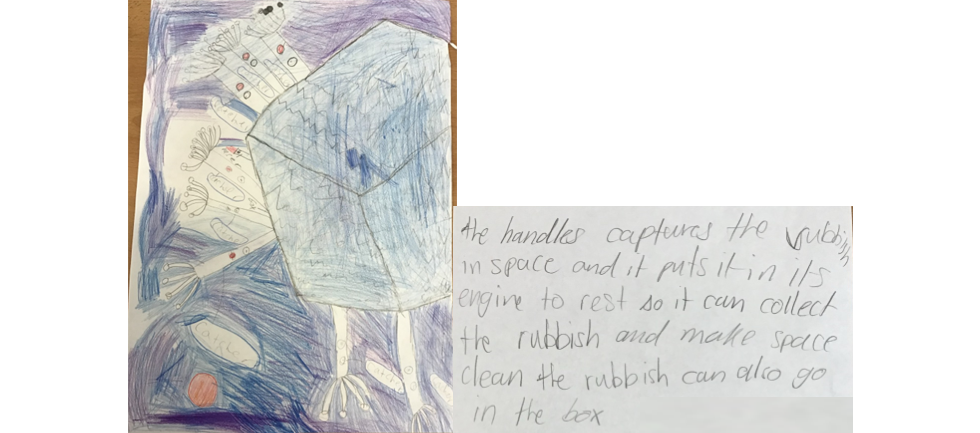 catcher
the handles captures the rubbish
in space and it puts it in its
engine to rest so it can collect
the rubbish and make space
clean the rubbish can also go
in the box